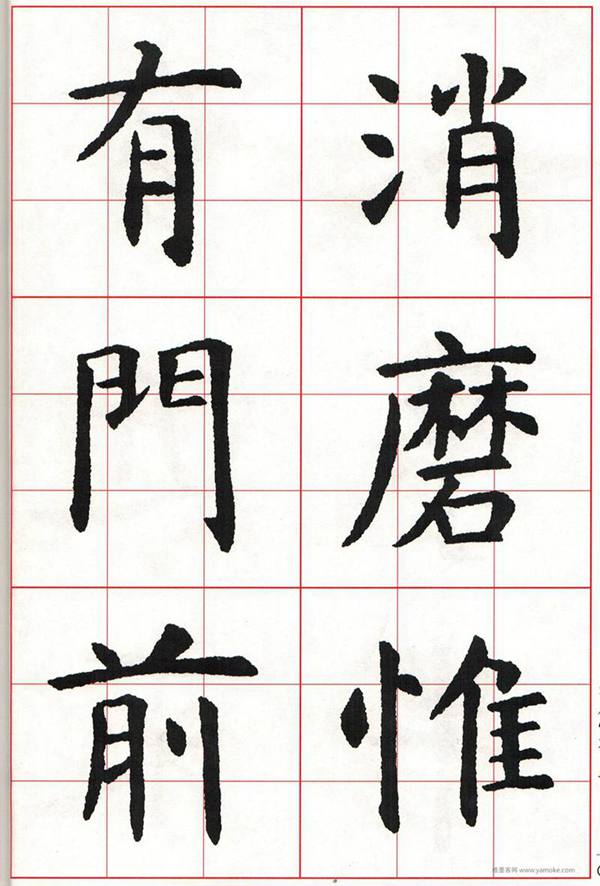 消磨惟
有門前
雅墨客网 www.yamoke.com